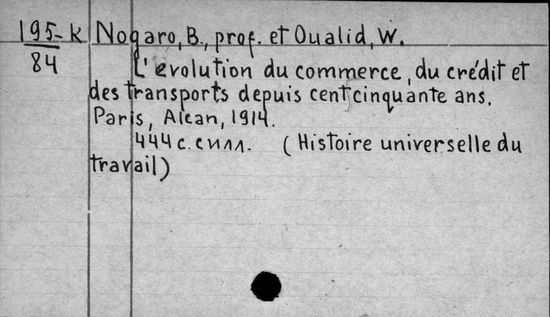 195-k Nogaro, B., prof. et Oualid, W.
84
L'évolution du commerce, du crédit et
des transports depuis cent cinquante ans.
Paris, Alcan, 1914.
444 с. с илл. (Histoire universelle du
travail)